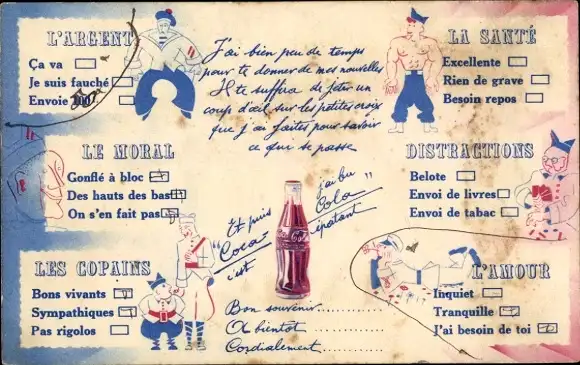 L'ARGENT
Ça va
Je suis fauché
Envoie
J'ai bien peu de temps
pour te donner de mes nouvelles
Il te suffira de jeter un
coup d'œil sur les petites croix
que j'ai faites pour savoir
ce qui se passe
LA SANTÉ
Excellente
Rien de grave
Besoin repos
LE MORAL
Gonflé à bloc
Des hauts des bas
On s'en fait pas
DISTRACTIONS
Belote
Envoi de livres
Envoi de tabac
Et puis j'ai bu
"Coca-Cola"
c'est épatant
LES COPAINS
Bons vivants
Sympathiques
Pas rigolos
Bon souvenir
A bientôt
Cordialement
L'AMOUR
Inquiet
Tranquille
J'ai besoin de toi